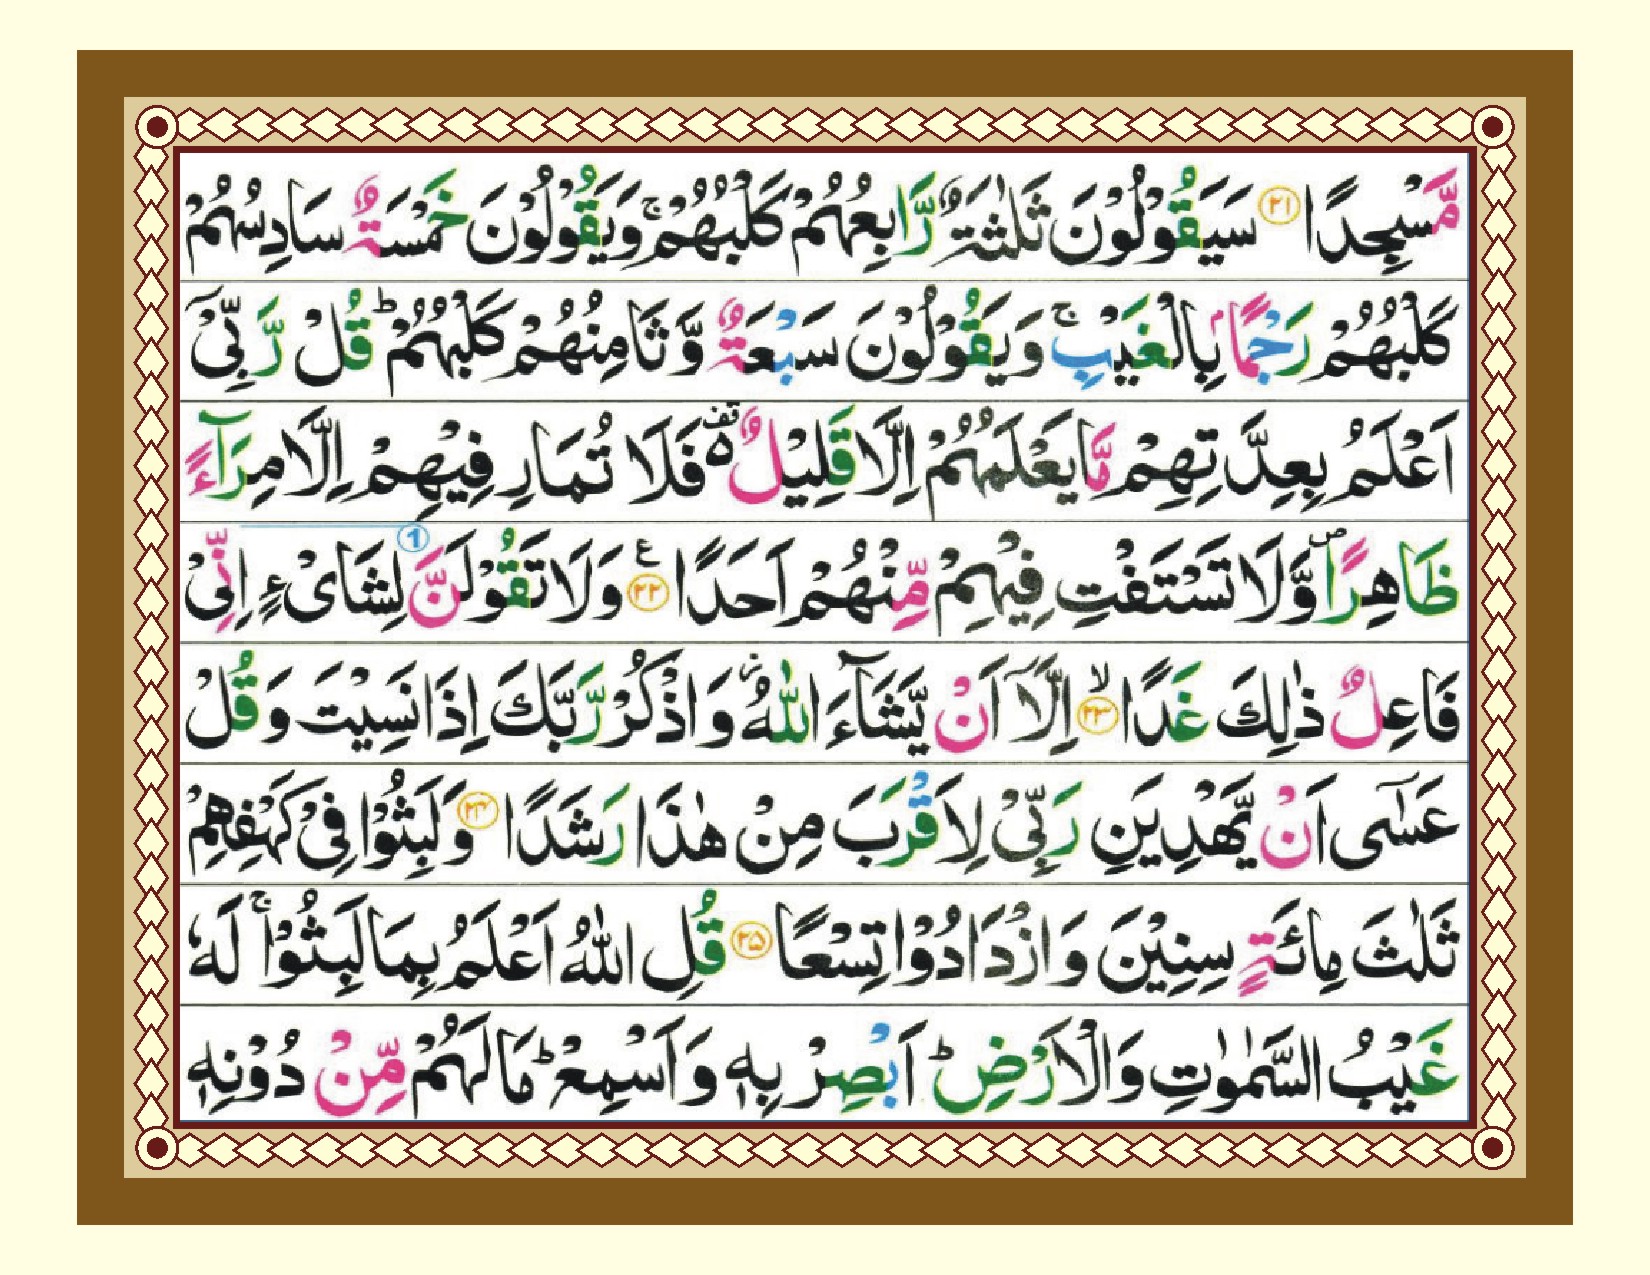 مَّسْجِدًا ﴿۲۱﴾ سَيَقُوْلُوْنَ ثَلٰثَةٌ رَّابِعُهُمْ كَلْبُهُمْ ۚ وَيَقُوْلُوْنَ خَمْسَةٌ سَادِسُهُمْ
كَلْبُهُمْ رَجْمًۢا بِالْغَيْبِ ۚ وَيَقُوْلُوْنَ سَبْعَةٌ وَّ ثَامِنُهُمْ كَلْبُهُمْ ؕ قُلْ رَّبِّىْۤ
اَعْلَمُ بِعِدَّتِهِمْ مَّا يَعْلَمُهُمْ اِلَّا قَلِيْلٌ ۵ قف فَلَا تُمَارِ فِيْهِمْ اِلَّا مِرَآءً
ظَاهِرًا ص وَّلَا تَسْتَفْتِ فِيْهِمْ مِّنْهُمْ اَحَدًا ﴿۲۲﴾ ع وَلَا تَقُوْلَنَّ لِشَاىْءٍ اِنِّىْ 1
فَاعِلٌ ذٰلِكَ غَدًا ﴿۲۳﴾ ۙ اِلَّاۤ اَنْ يَّشَآءَ اللّٰهُ ز وَاذْكُرْ رَّبَّكَ اِذَا نَسِيْتَ وَقُلْ
عَسٰٓى اَنْ يَّهْدِيَنِ رَبِّىْ لِاَقْرَبَ مِنْ هٰذَا رَشَدًا ﴿۲۴﴾ وَلَبِثُوْا فِىْ كَهْفِهِمْ
ثَلٰثَ مِائَةٍ سِنِيْنَ وَازْدَادُوْا تِسْعًا ﴿۲۵﴾ قُلِ اللّٰهُ اَعْلَمُ بِمَا لَبِثُوْا ۚ لَهٗ
غَيْبُ السَّمٰوٰتِ وَالْاَرْضِ ؕ اَبْصِرْ بِهٖ وَاَسْمِعْ ؕ مَا لَهُمْ مِّنْ دُوْنِهٖ